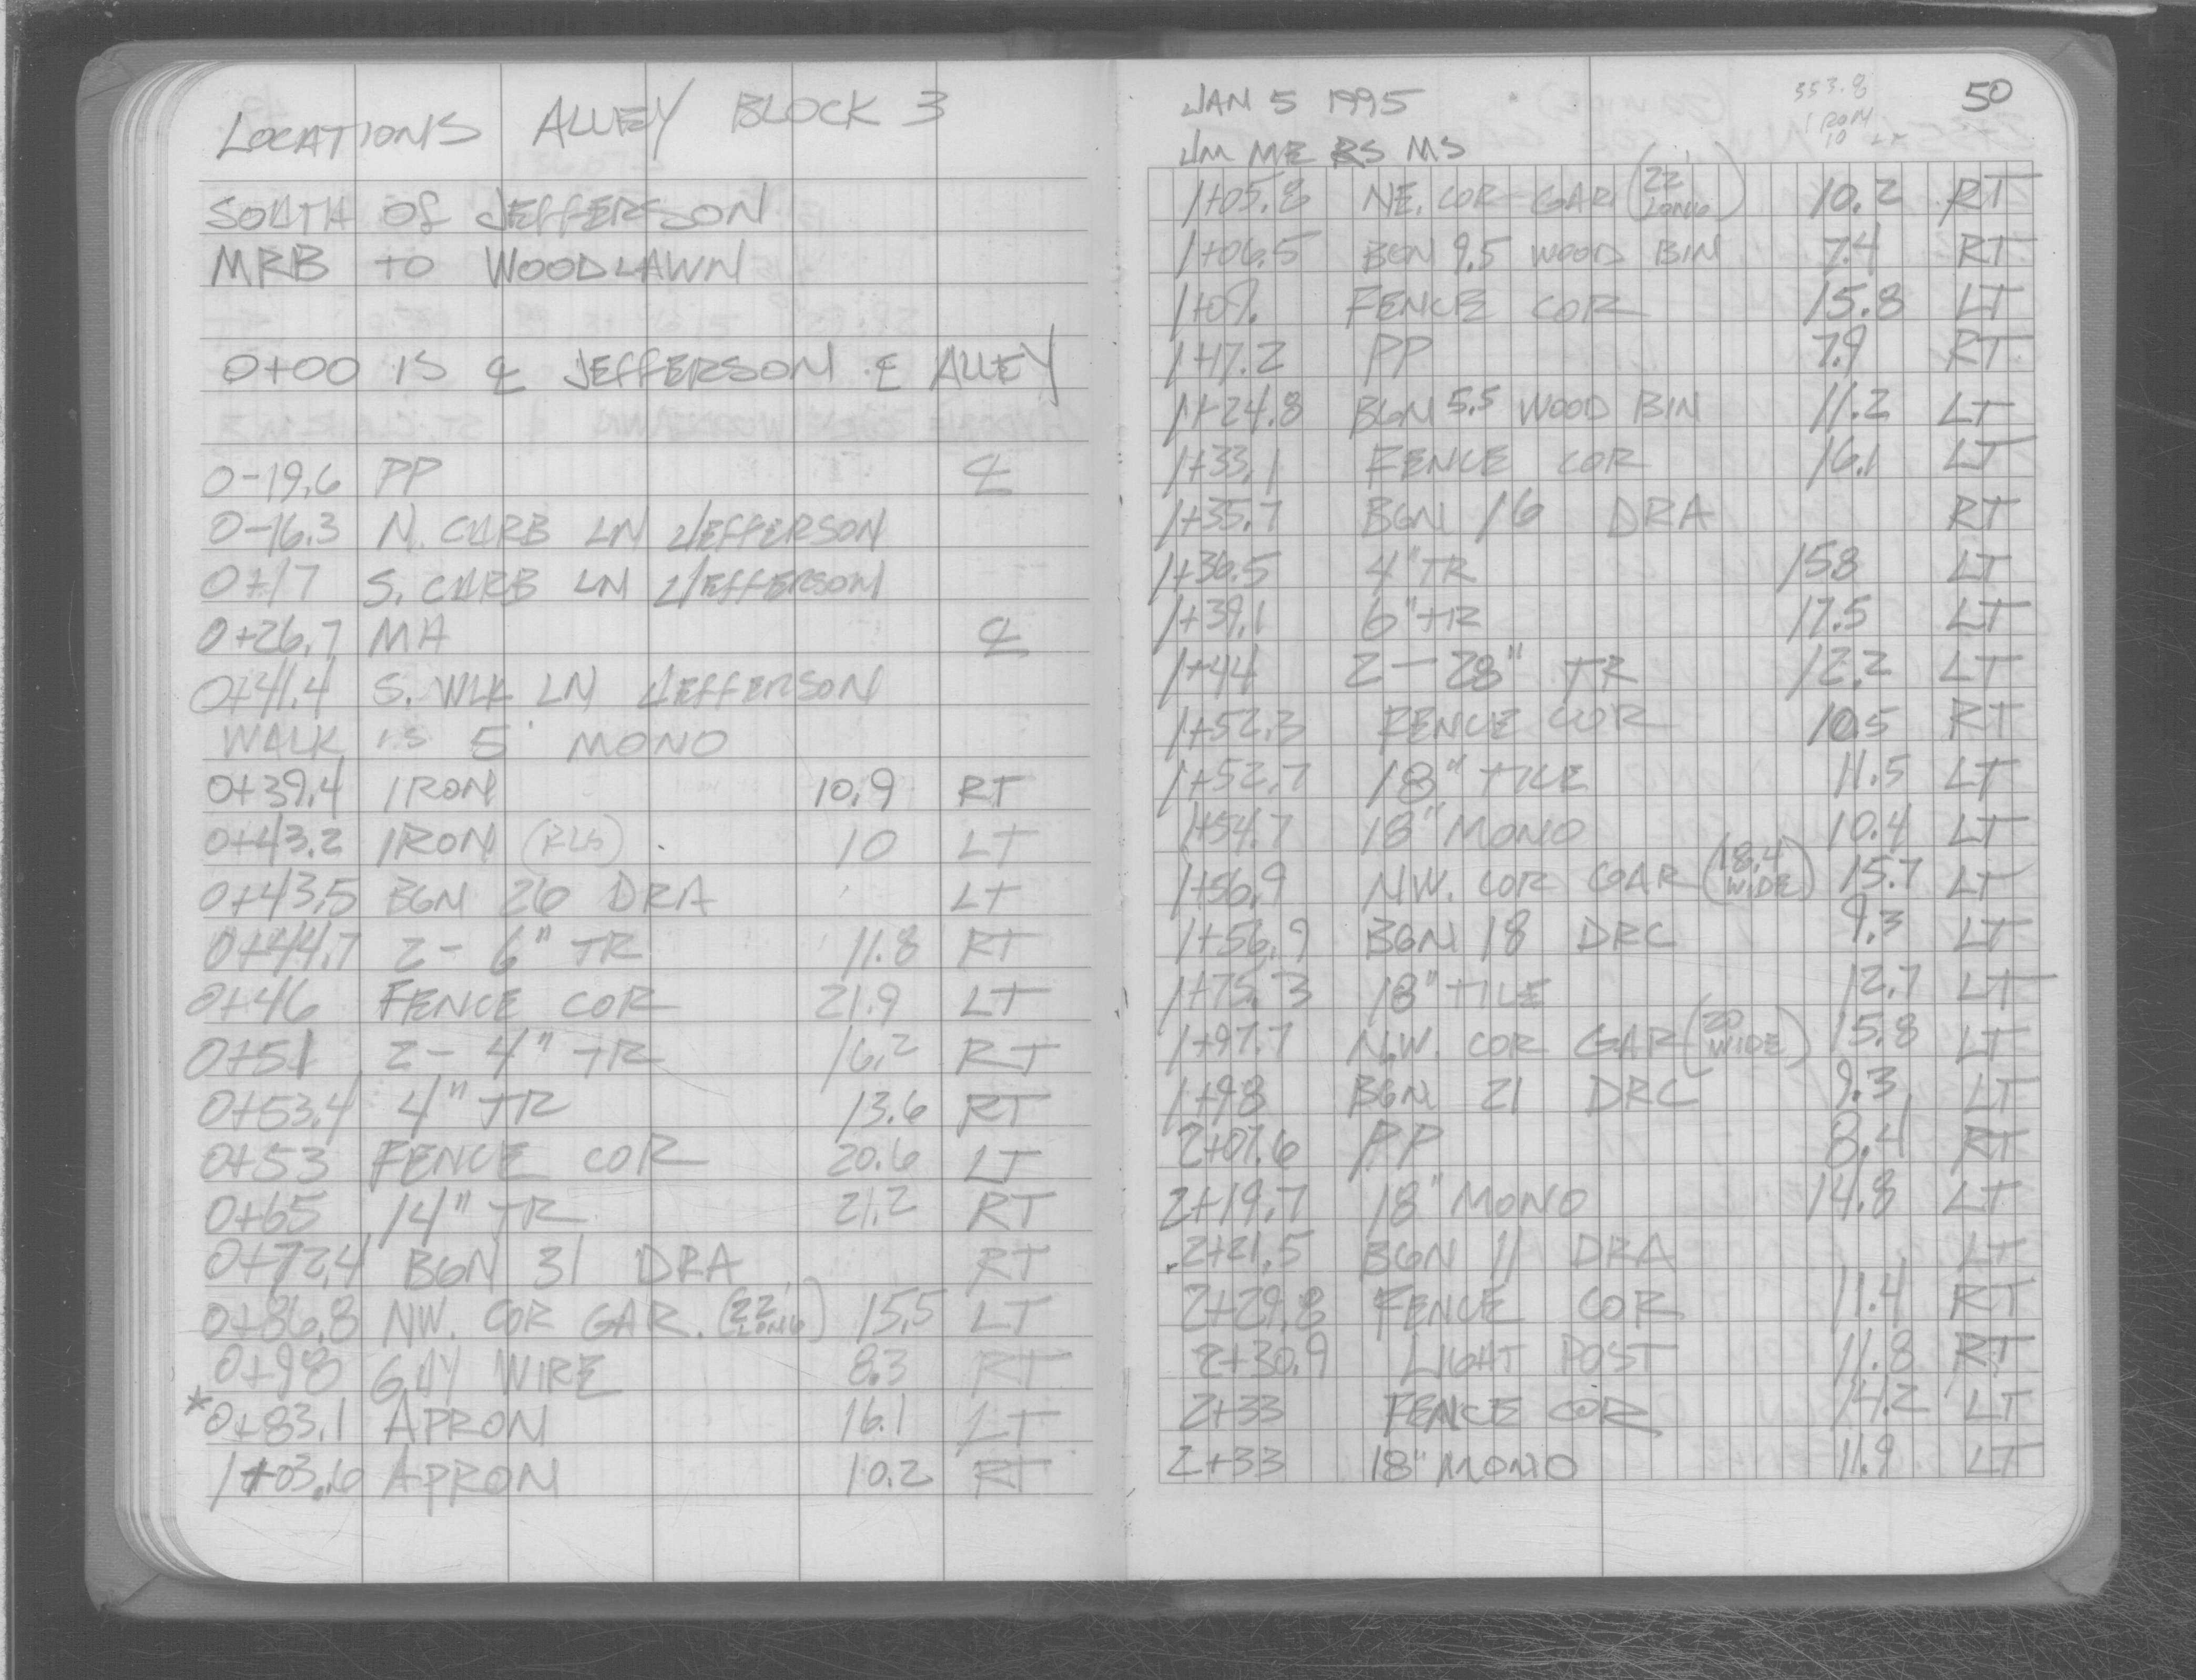 LOCATIONS ALLEY BLOCK 3
SOUTH OF JEFFERSON
MRB TO WOODLAWN
0+00 IS ℄ JEFFERSON ℄ ALLEY
0-19.6 PP ℄
0-16.3 N. CURB LN JEFFERSON
0+17 S. CURB LN JEFFERSON
0+26.7 MH ℄
0+41.4 S. WLK LN JEFFERSON
WALK IS 5' MONO
0+39.4 IRON 10.9 RT
0+43.2 IRON (RLS) 10 LT
0+43.5 BGN 26 DRA LT
0+44.7 2- 6" TR 11.8 RT
0+46 FENCE COR 21.9 LT
0+51 2- 4" TR 16.2 RT
0+53.4 4" TR 13.6 RT
0+53 FENCE COR 20.6 LT
0+65 14" TR 21.2 RT
0+72.4 BGN 31 DRA RT
0+86.8 NW. COR GAR. (22' LONG) 15.5 LT
0+98 GUY WIRE 8.3 RT
*0+83.1 APRON 16.1 LT
1+03.6 APRON 10.2 RT
JAN 5 1995 353.8 50
IRON
JM ME RS MS 10 LT
1+05.8 NE. COR GAR (22' LONG) 10.2 RT
1+06.5 BGN 9.5 WOOD BIN 7.4 RT
1+09. FENCE COR 15.8 LT
1+17.2 PP 7.9 RT
1+24.8 BGN 5.5 WOOD BIN 11.2 LT
1+33.1 FENCE COR 16.1 LT
1+35.7 BGN 16 DRA RT
1+36.5 4" TR 15.8 LT
1+39.1 6" TR 17.5 LT
1+44 2-28" TR 12.2 LT
1+52.3 FENCE COR 10.5 RT
1+52.7 18" TILE 11.5 LT
1+54.7 18" MONO 10.4 LT
1+56.9 NW. COR GAR (18.4 WIDE) 15.7 LT
1+56.9 BGN 18 DRC 9.3 LT
1+75.3 18" TILE 12.7 LT
1+97.7 N.W. COR GAR (20 WIDE) 15.8 LT
1+98 BGN 21 DRC 9.3 LT
2+07.6 PP 8.4 RT
2+19.7 18" MONO 14.8 LT
2+21.5 BGN 11 DRA LT
2+29.8 FENCE COR 11.4 RT
2+30.9 LIGHT POST 11.8 RT
2+33 FENCE COR 14.2 LT
2+33 18" MONO 11.9 LT